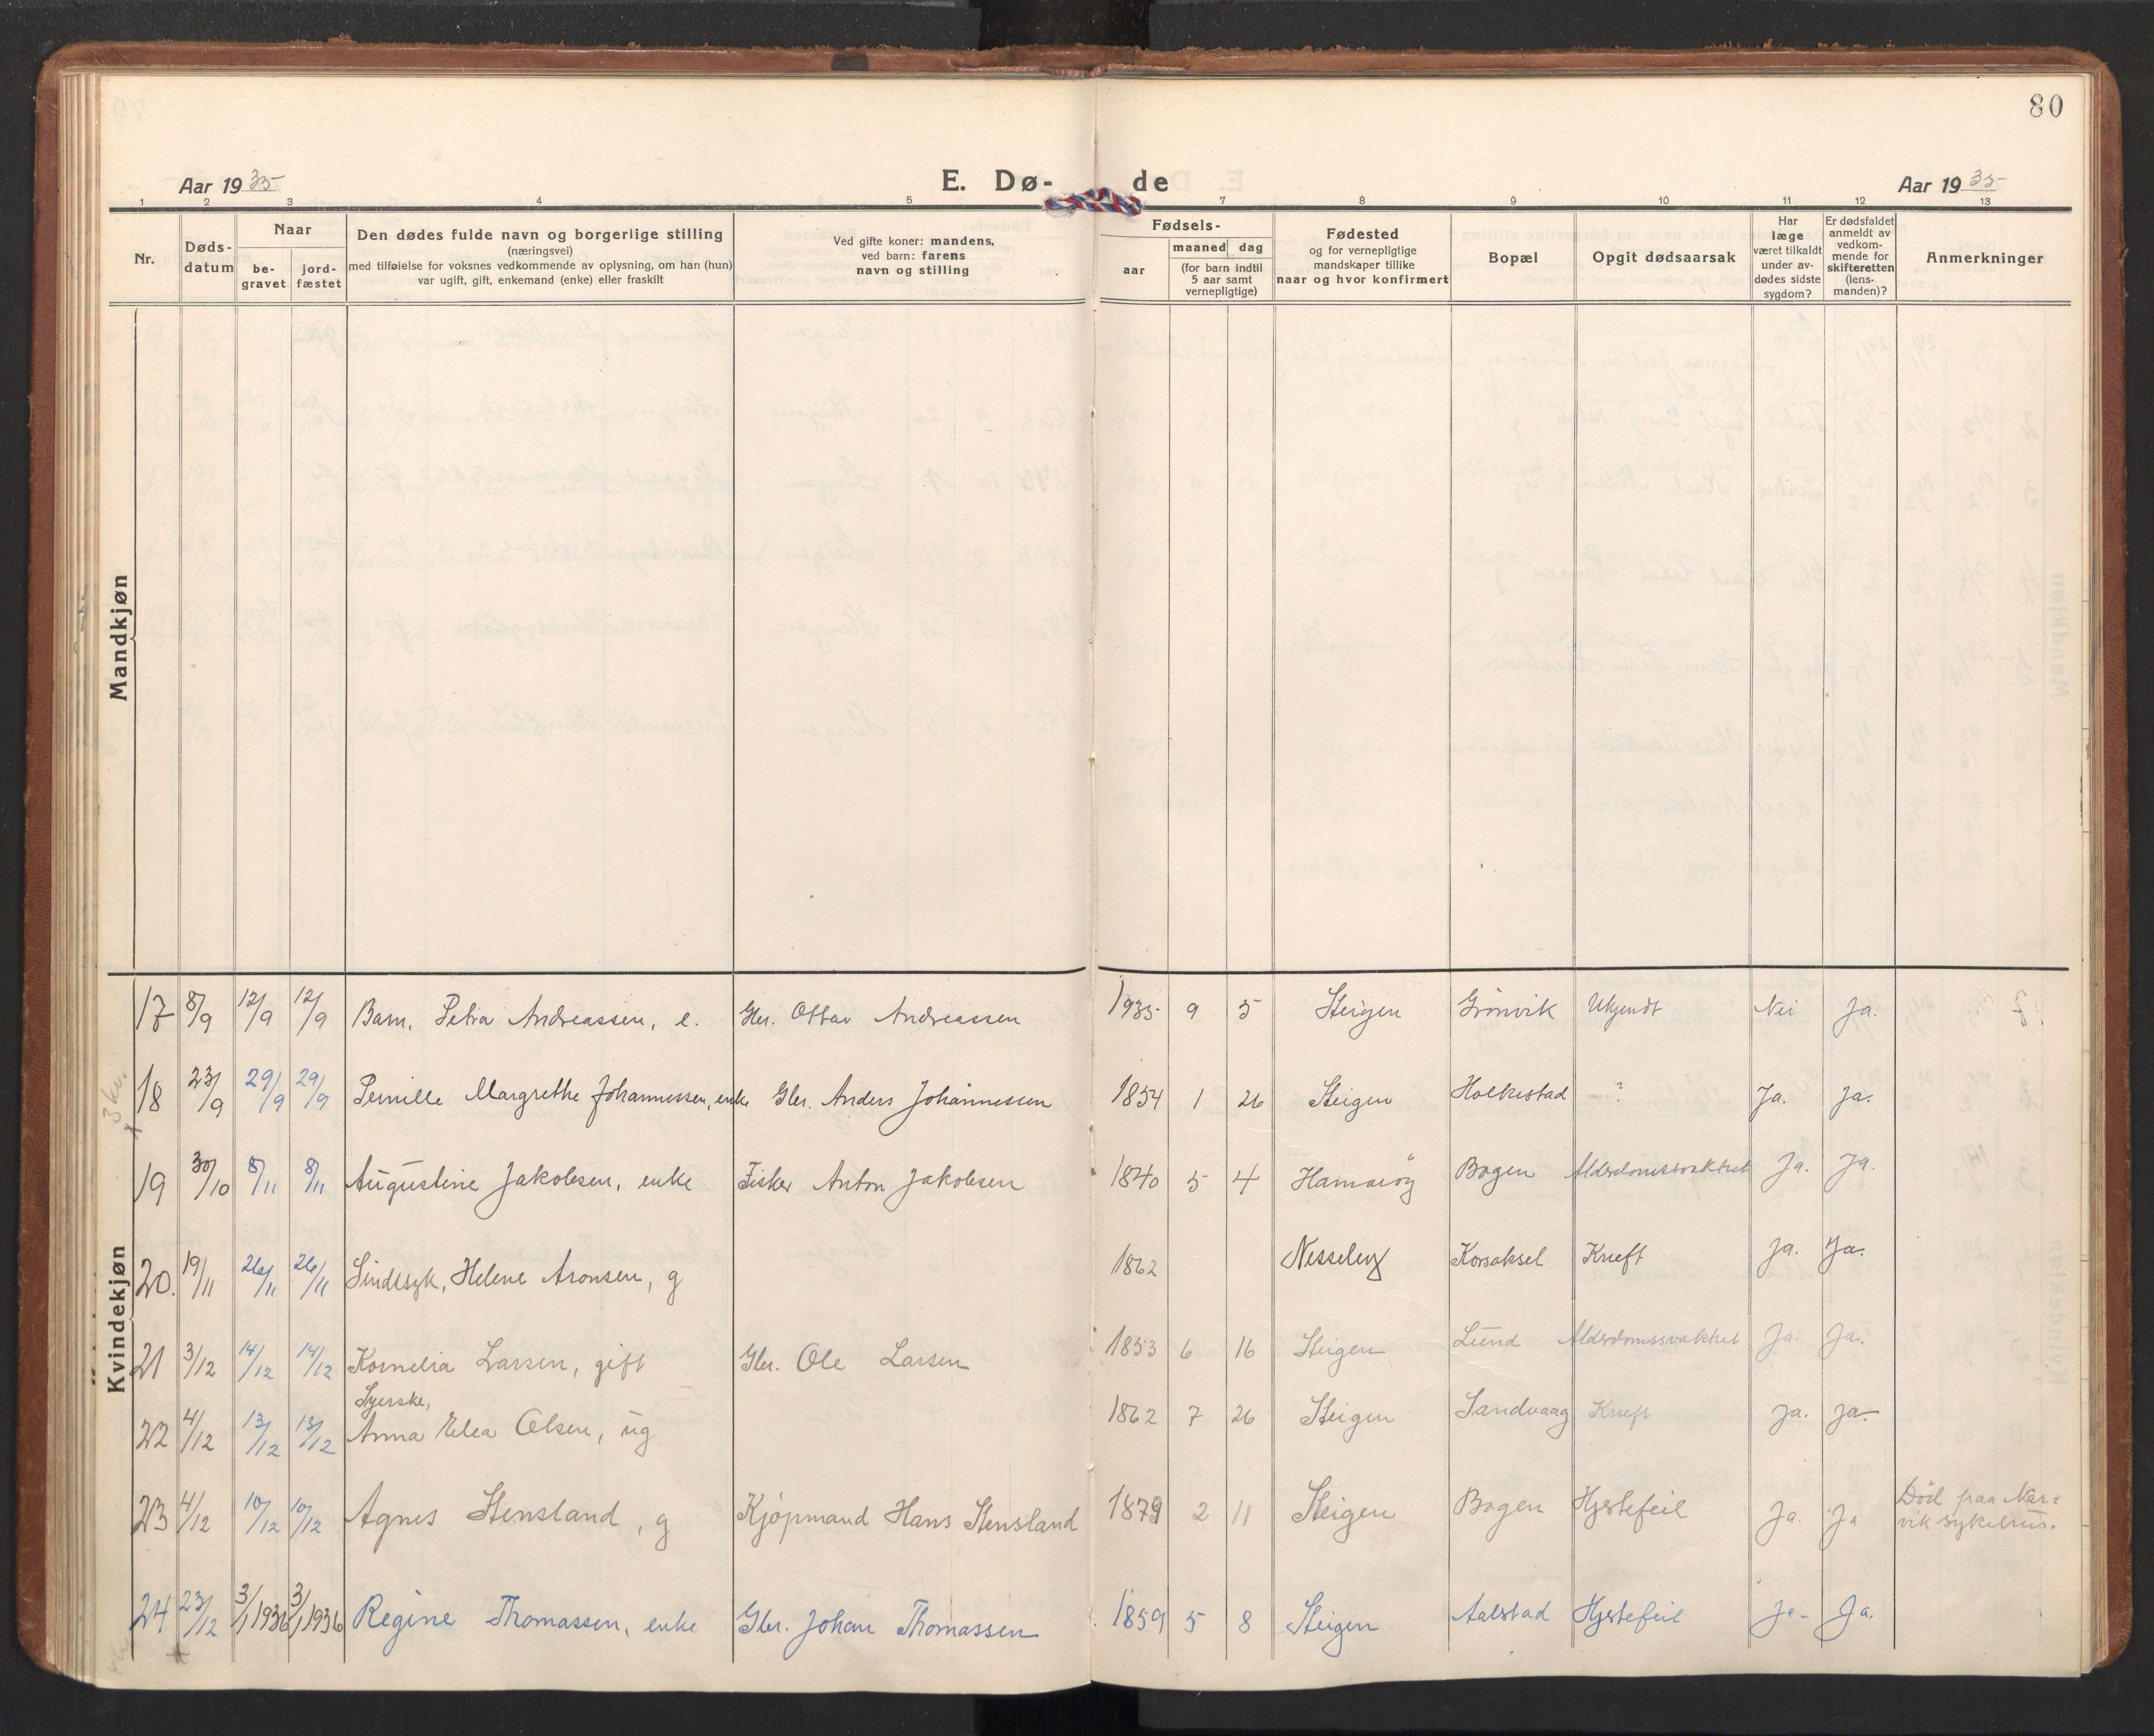 80
Aar 1935
E. Dø-
de
Aar 1935
1 2 3 4 5 7 8 9 10 11 12 13
Nr.
Døds-
datum
Naar
be-
gravet
jord-
fæstet
Den dødes fulde navn og borgerlige stilling
(næringsvei)
med tilføielse for voksnes vedkommende av oplysning, om han (hun)
var ugift, gift, enkemand (enke) eller fraskilt
Ved gifte koner: mandens,
ved barn: farens
navn og stilling
Fødsels-
aar
maaned dag
(for barn indtil
5 aar samt
vernepligtige)
Fødested
og for vernepligtige
mandskaper tillike
naar og hvor konfirmert
Bopæl
Opgit dødsaarsak
Har
læge
været tilkaldt
under av-
dødes sidste
sygdom?
Er dødsfaldet
anmeldt av
vedkom-
mende for
skifteretten
(lens-
manden)?
Anmerkninger
Mandkjøn
Kvindekjøn
17 8/9 12/9 12/9 Barn, Petra Andreassen, e. Gbr. Ottar Andreassen 1935 9 5 Steigen Grönvik Ukjendt Nei Ja.
3 kv.
18 23/9 29/9 29/9 Pernille Margrethe Johannessen, enke Gbr. Anders Johannessen 1854 1 26 Steigen Holkestad ? Ja. Ja.
19 30/10 8/11 8/11 Augustine Jakobsen, enke Fisker Anton Jakobsen 1840 5 4 Hamaröy Bogen Alderdomssvakhet Ja. Ja.
20. 19/11 26/11 26/11 Sindssyk, Helene Aronsen, g 1862 Nesseby Korsaksel Kreft Ja. Ja.
21 3/12 14/12 14/12 Kornelia Larsen, gift Gbr. Ole Larsen 1853 6 16 Steigen Lund Alderdomssvakhet Ja. Ja.
Syerske,
22 4/12 13/12 13/12 Anna Elea Olsen, ug 1862 7 26 Steigen Sandvaag Kreft Ja. Ja.
23 4/12 10/12 10/12 Agnes Stensland, g Kjöpmand Hans Stensland 1879 2 11 Steigen Bogen Hjertefeil Ja. Ja Död paa Nar=
vik sykehus.
24 23/12 3/1 1936 3/1 1936 Regine Thomassen, enke Gbr. Johan Thomassen 1859 5 8 Steigen Aalstad Hjertefeil Ja- Ja.